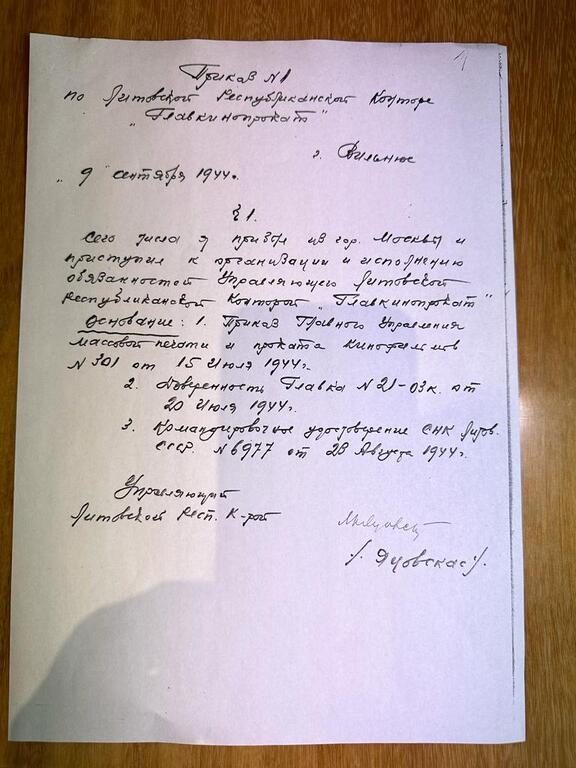 1
Приказ №1
по Литовской Республиканской Конторе
„Главкинопрокат"
г. Вильнюс
„9" сентября 1944г.
§ 1.
Сего числа я прибыл из гор. Москвы и
приступил к организации и исполнению
обязанностей Управляющего Литовской
Республиканской Конторой „Главкинопрокат"
Основание: 1. Приказ Главного Управления
массовой печати и проката кинофильмов
№ 301 от 15 Июля 1944г.
2. Доверенность Главка № 21-03к. от
20 Июля 1944г.
3. Командировочное удостоверение СНК Литов.
СССР. № 6977 от 28 Августа 1944г.
Управляющий
Литовской Респ. К-рой
/. Яцовскас /.